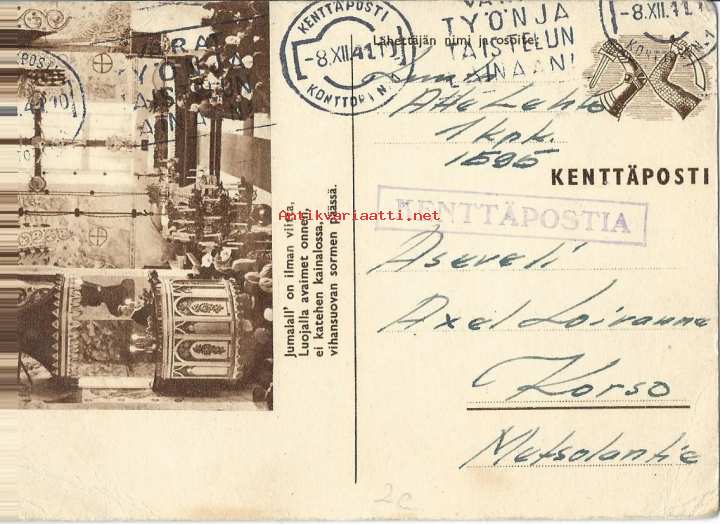 KENTTÄPOSTI
-8.XII.41
KONTTORI N:
TYÖNJA
TAISTELUN
-8.XII.41
Lähettäjän nimi ja osoite:
Atte Lehto
1 kpk.
1595
KENTTÄPOSTI
KENTTÄPOSTIA
Antikvariaatti.net
Jumalall' on ilman viitta,
Luojalla avaimet onnen,
ei katehen kainalossa,
vihansuovan sormen päässä.
Aseveli
Axel Loivanne
Korso
Metsolantie
2c